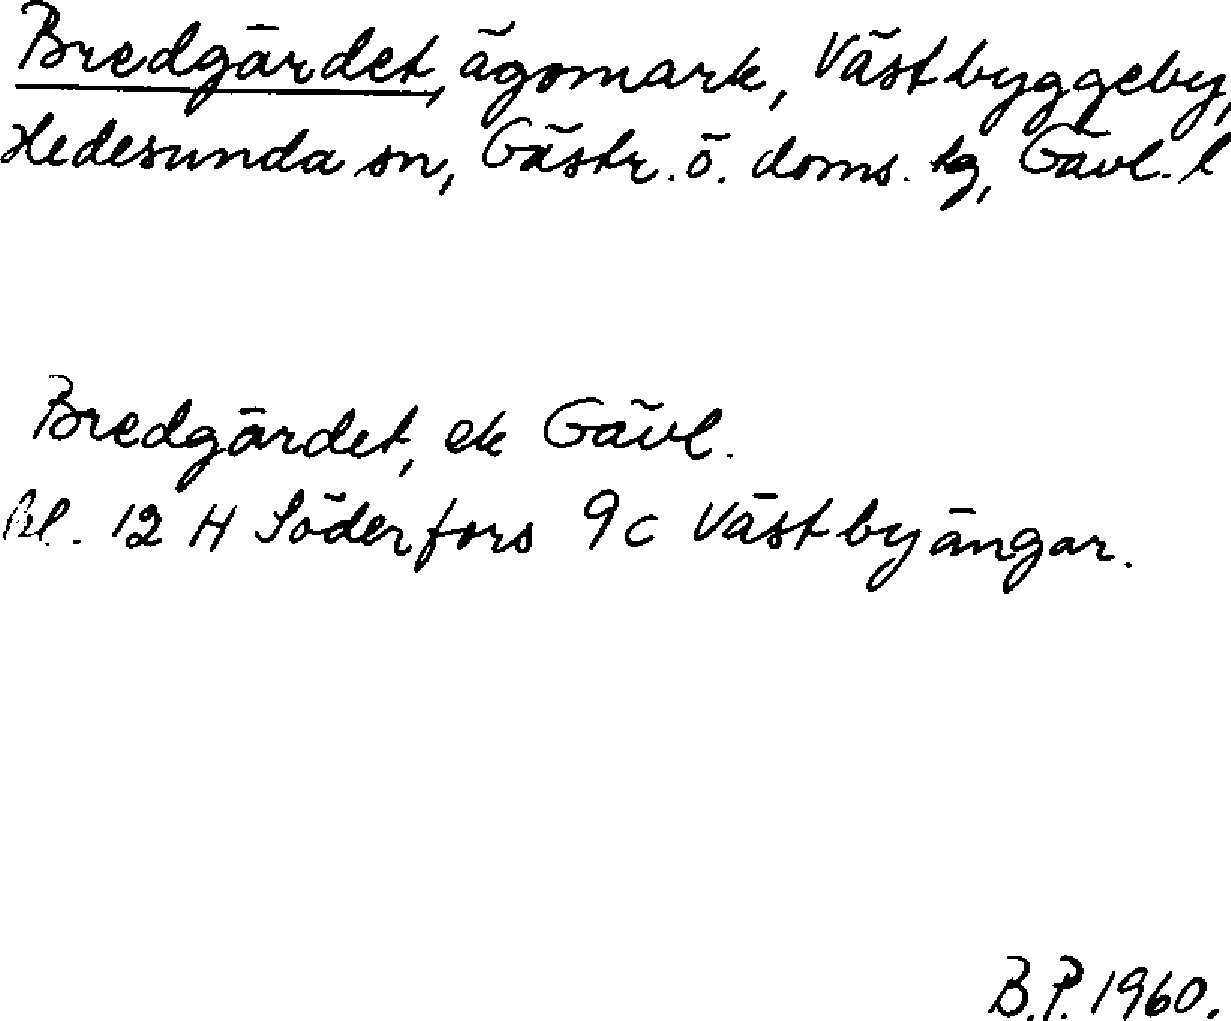 Bredgärdet, ägomark, Västbyggeby,
Hedesunda sn, Gästr. ö. doms. tg, Gävl. l
Bredgärdet, ek Gävl.
Bl. 12 H Söderfors 9c Västbyängar.
B.P. 1960.